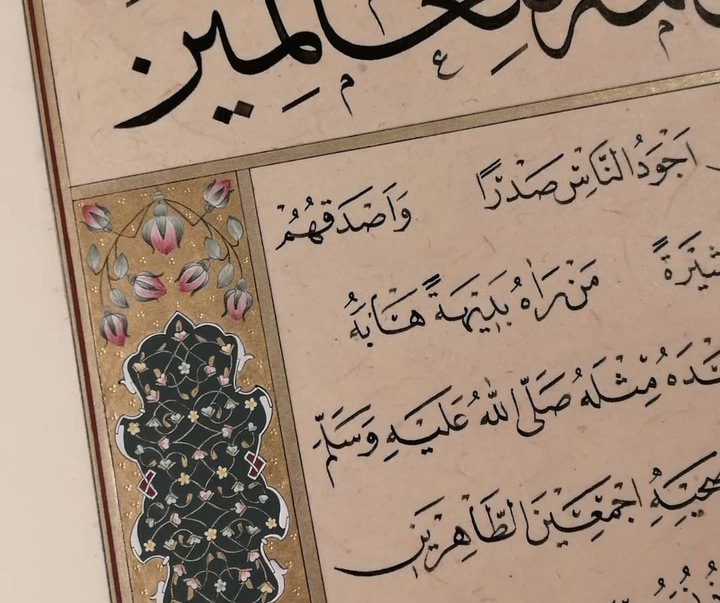 للعالمين
اجود الناس صدرًا واصدقهم
من راه بديهة هابه
مثله صلى الله عليه وسلم
اجمعين الطاهرين